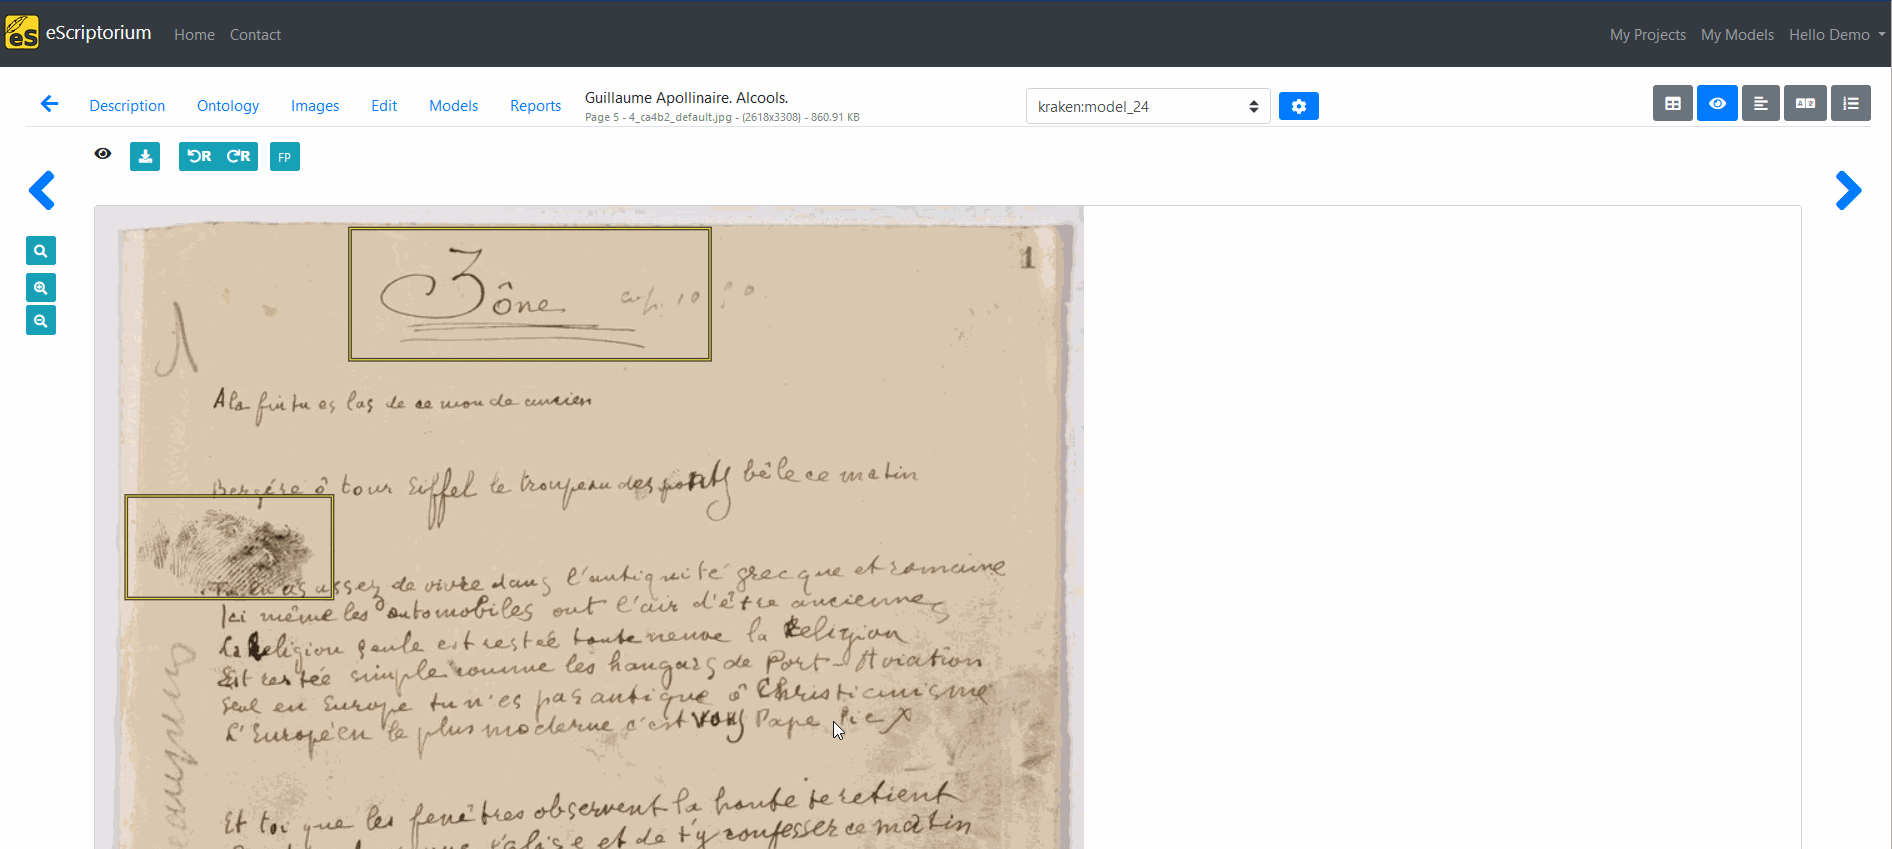 eScriptorium Home Contact My Projects My Models Hello Demo
Description Ontology Images Edit Models Reports
Guillaume Apollinaire. Alcools.
Page 5 - 4_ca4b2_default.jpg - (2618x3308) - 860.91 KB
kraken:model_24
R R FP
1
Zône
A la fin tu es las de ce monde ancien
Bergère ô tour Eiffel le troupeau des ponts bêle ce matin
Tu en as assez de vivre dans l'antiquité grecque et romaine
Ici même les automobiles ont l'air d'être anciennes
La Religion seule est restée toute neuve la Religion
Est restée simple comme les hangars de Port-Aviation
Seul en Europe tu n'es pas antique ô Christianisme
L'Européen le plus moderne c'est vous Pape Pie X
Et toi que les fenêtres observent la honte te retient
et de t'y confesser ce matin